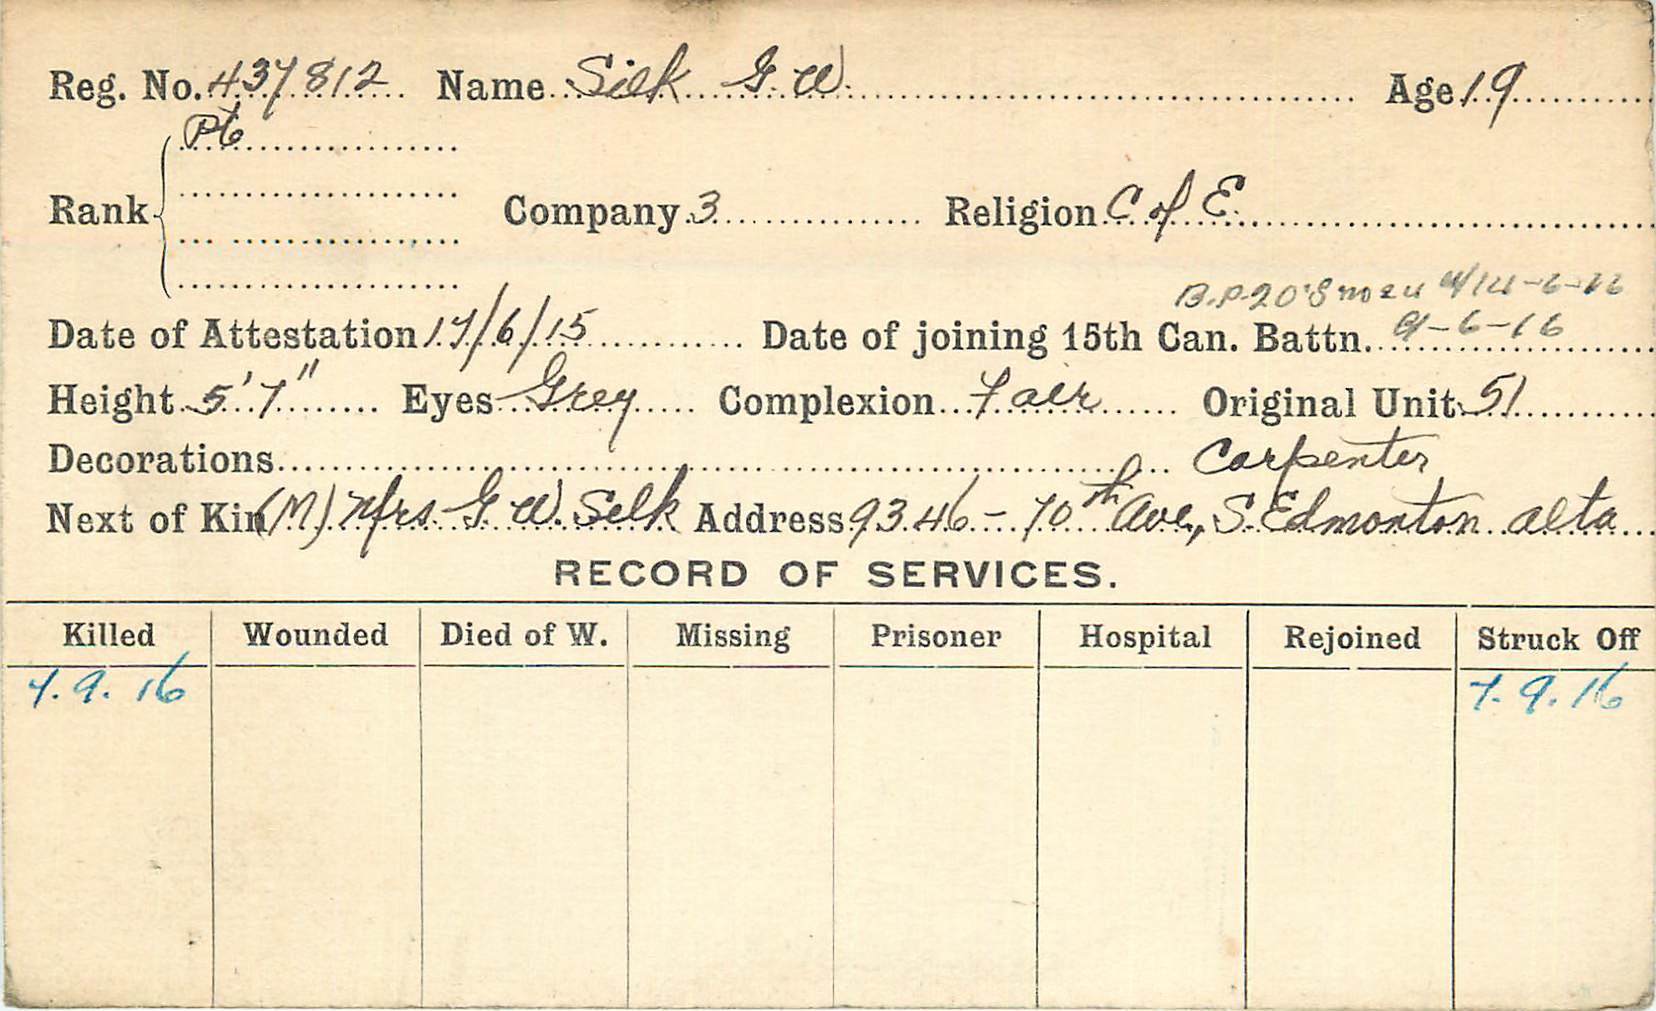 Reg. No. 437812 Name Silk G. W. Age 19
Pte
Rank Company 3 Religion C of E.
B.P. 20's no 24 14-6-16
Date of Attestation 17/6/15 Date of joining 15th Can. Battn. 9-6-16
Height 5'7" Eyes Grey Complexion Fair Original Unit 51
Decorations Carpenter
Next of Kin (M) Mrs. G. W. Silk Address 9346 - 70th Ave, S. Edmonton alta
RECORD OF SERVICES.
Killed Wounded Died of W. Missing Prisoner Hospital Rejoined Struck Off
7.9.16 7.9.16